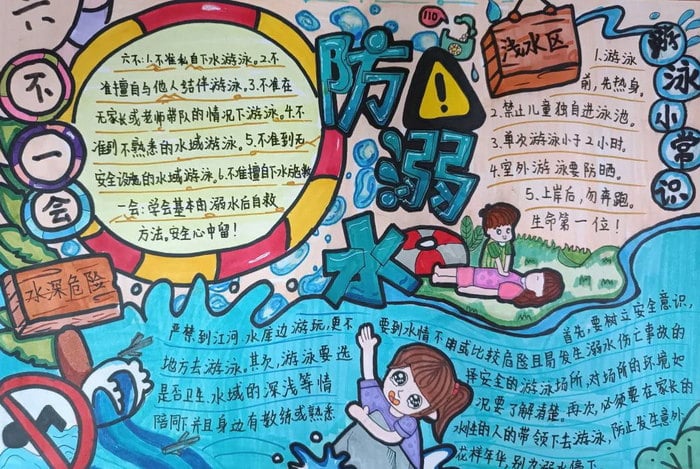 六
不
一
会
六不:1.不准私自下水游泳。2.不
准擅自与他人结伴游泳。3.不准在
无家长或老师带队的情况下游泳。4.不
准到不熟悉的水域游泳。5.不准到无
安全设施的水域游泳。6.不准擅自下水施救
一会:学会基本的溺水后自救
方法。安全心中留!
防
溺
水
110
浅水区
游
泳
小
常
识
1.游泳
前,先热身。
2.禁止儿童独自进泳池。
3.单次游泳小于2小时。
4.室外游泳要防晒。
5.上岸后,勿奔跑。
生命第一位!
水深危险
首先,要树立安全意识,
严禁到江河、水库边游玩,更不要到水情不用或比较危险且易发生溺水伤亡事故的
地方去游泳。其次,游泳要选择安全的游泳场所,对场所的环境如
是否卫生、水域的深浅等情况要了解清楚。再次,必须要在家长的
陪同下并且身边有教练或熟悉水性的人的带领下去游泳,防止发生意外
花样年华,别为溺水停下